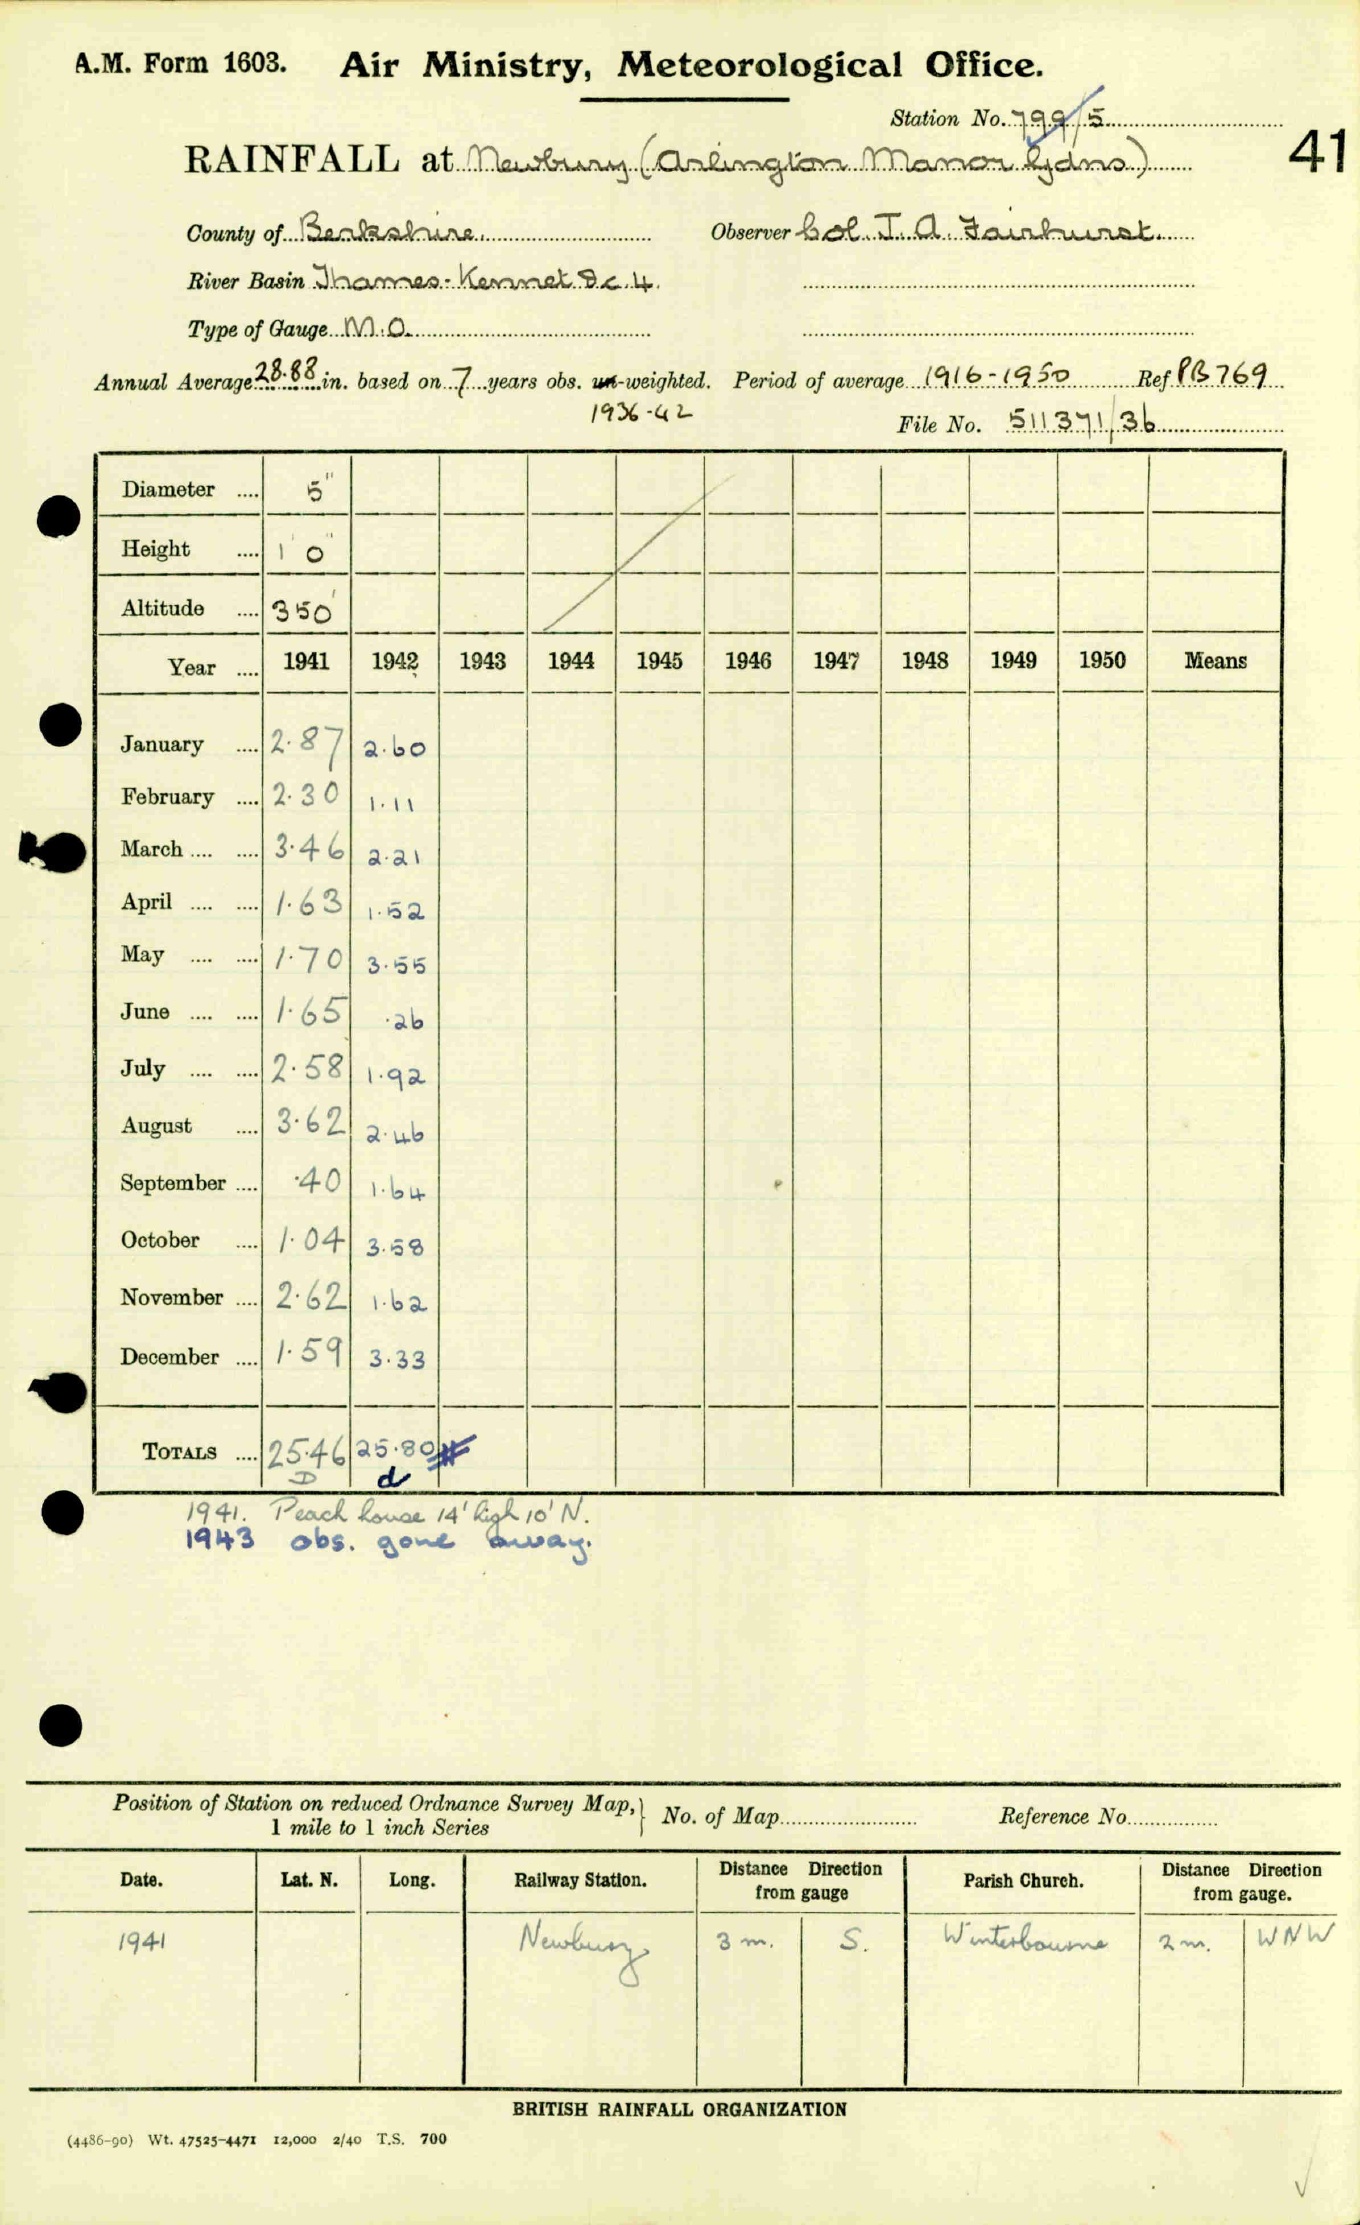 A.M. Form 1603. Air Ministry, Meteorological Office.
Station No. 799/5
41
RAINFALL at Newbury (Arlington Manor Gdns)
County of Berkshire. Observer Col. J. A. Fairhurst.
River Basin Thames-Kennet Dc.4.
Type of Gauge M.O.
Annual Average 28.88 in. based on 7 years obs. un-weighted. Period of average 1916-1950 Ref PB769
1936-42
File No. 511371/36
Diameter .... 5"
Height .... 1' 0"
Altitude .... 350'
Year .... 1941 1942 1943 1944 1945 1946 1947 1948 1949 1950 Means
January .... 2.87 2.60
February .... 2.30 1.11
March .... .... 3.46 2.21
April .... .... 1.63 1.52
May .... .... 1.70 3.55
June .... .... 1.65 .26
July .... .... 2.58 1.92
August .... 3.62 2.46
September .... .40 1.64
October .... 1.04 3.58
November .... 2.62 1.62
December .... 1.59 3.33
TOTALS .... 25.46 25.80
D d
1941. Peach house 14' high 10' N.
1943 obs. gone away.
Position of Station on reduced Ordnance Survey Map, } No. of Map Reference No.
1 mile to 1 inch Series
Date. Lat. N. Long. Railway Station. Distance Direction from gauge Parish Church. Distance Direction from gauge.
1941 Newbury 3 m. S. Winterbourne 2 m. WNW
BRITISH RAINFALL ORGANIZATION
(4486-90) Wt. 47525-4471 12,000 2/40 T.S. 700